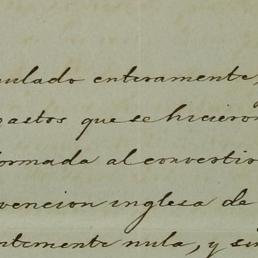 ulado enteramente,
gastos que se hicieron
formada al convertir
vencion inglesa de
ntemente nula, y sin